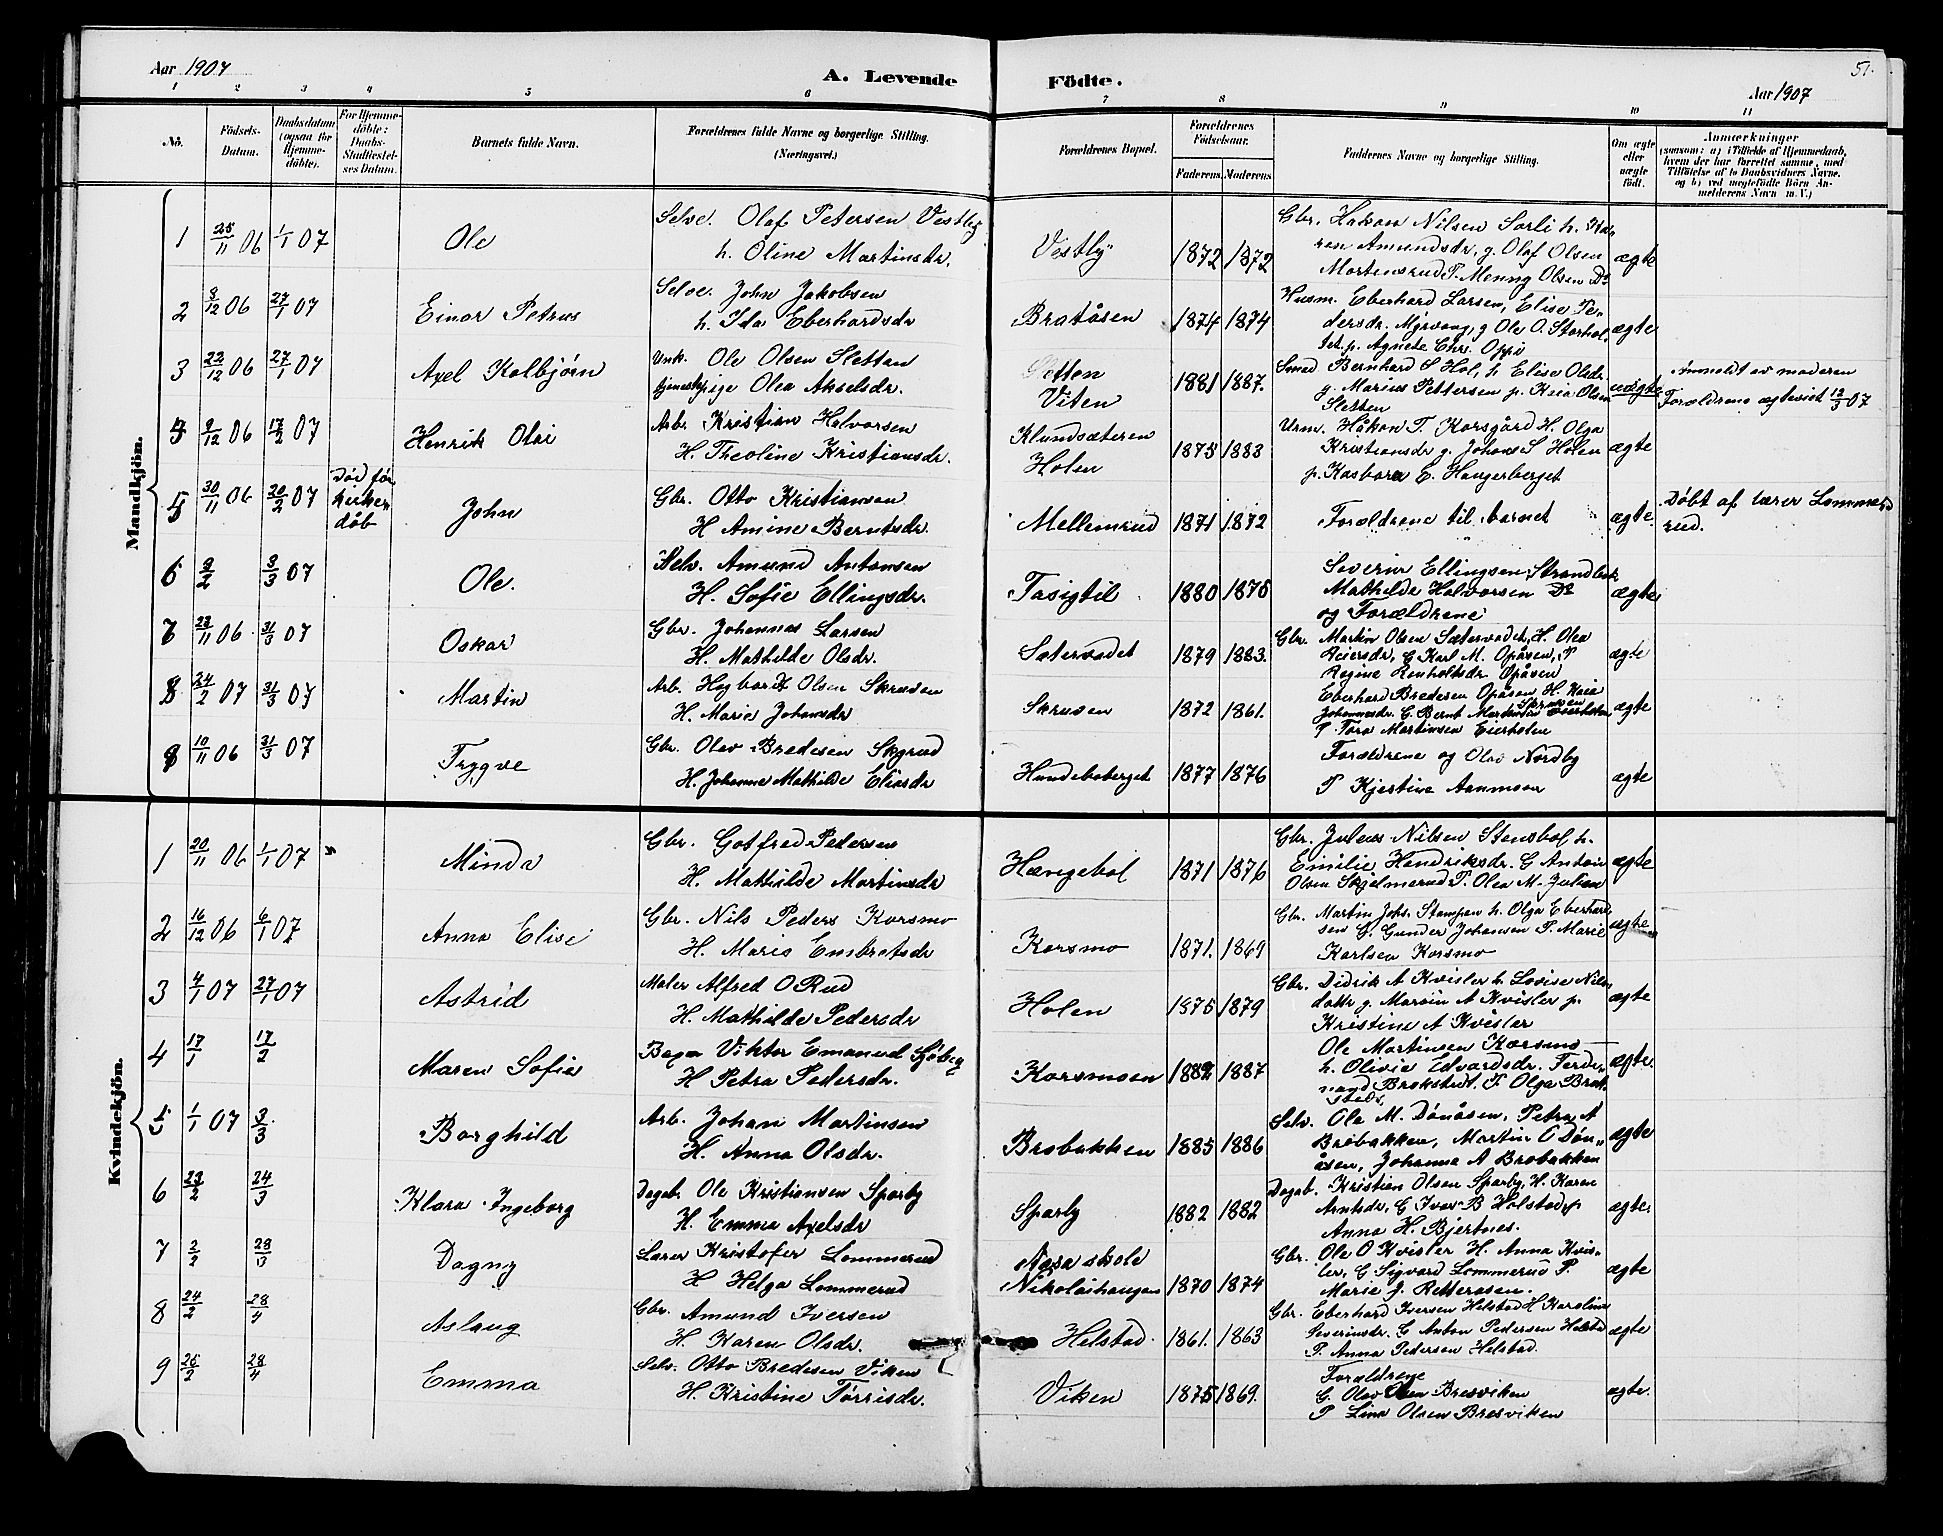 Aar 1907
A. Levende Födte.
51.
Aar 1907
1 2 3 4 5 6 7 8 9 10 11
No.
Födsels-Datum.
Daabsdatum (ogsaa for Hjemme-döbte).
For Hjemme-döbte: Daabs-Stadfæstel-ses Datum.
Barnets fulde Navn.
Forældrenes fulde Navne og borgerlige Stilling.
(Næringsvei.)
Forældrenes Bopæl.
Forældrenes Födselsaar.
Faderens. Moderens.
Faddernes Navne og borgerlige Stilling.
Om ægte eller uægte födt.
Anmærkninger
(saasom: a) i Tilfælde af Hjemmedaab, hvem der har forrettet samme, med Tilföielse af to Daabsvidners Navne. og b) ved uægtefödte Börn An-melderens Navn m. V.)
Mandkjön.
1 25/11 06 1/1 07 Ole
Selve. Olaf Petersen Vestby
h. Oline Martinsdr.
Vestby 1872 1872
Gbr. Hakon Nilsen Sorli h. Ka-
ren Amundsdr, g. Olaf Olsen
Mortensrud P. Menny Olsen Do
ægte
2 8/12 06 27/1 07 Einar Petrus
Selve. John Jakobsen
h. Ida Eberhardsdr
Bratåsen 1874 1874
Husm. Eberhard Larsen, Elise Pe-
dersdr. Myrvang, g Ole O. Storhol-
set p. Agnete Chr. Oppi
ægte
3 22/12 06 27/1 07 Axel Kolbjørn
Unk. Ole Olsen Slettan
tjenestepige Olea Akselsdr.
Sletten
Viten
1881 1887.
Smed Bernhard S Hol, h. Elise Olsdr.
g. Marius Pettersen p. Kaia Olsen
Sletten
uægte
Anmeldt av moderen
Forældrene ægteviet 12/3 07
4 9/12 06 17/2 07 Henrik Olai
Arb. Kristian Halvorsen
H. Theoline Kristiansdr.
Klundsæteren
Holen
1875 1883
Urm. Håkon T. Korsgård H. Olga
Kristiansdr g. Johan S Holen
p. Kasbara E. Haugerberget
ægte
5 30/11 06 20/2 07 Død før kirken døb John
Gbr. Otto Kristiansen
H Amine Berntsdr.
Mellemrud 1871 1872
Forældrene til barnet
ægte
Døbt af lærer Lomme-
rud.
6 9/2 3/3 07 Ole.
Selv. Amund Antonsen
H. Sofie Ellingsdr.
Tasigtil 1880 1875
Severin Ellingsen Strandbek
Mathilde Halvorsen Do
og Forældrene
ægte
7 23/11 06. 31/3 07 Oskar
Gbr. Johannes Larsen
H. Mathilde Olsdr.
Satervadet 1879 1883.
Gbr. Martin Olsen Satervadet, H. Olea
Reiersdr, G Karl M. Opåsen, P
Regine Renholtsdr Opåsen
ægte
8 24/2 07 31/3 07 Martin
Arb. Hagbart Olsen Skrusen
H. Marie Johansdr
Skrusen 1872 1861.
Eberhard Bredesen Opåsen, H. Kaia
Johannesdr. Skrusen G. Bernt Martinsen Eierholen
P. Tora Martinsen Eierholen
ægte
9 10/11 06 31/3 07 Trygve
Gbr. Olav Bredesen Skgrud
H. Johanne Mathilde Eliasdr
Hundeboberget 1877 1876
Forældrene og Olav Nordby
P Kjestine Aanmoen
ægte
Kvindekjön.
1 20/11 06 1/1 07 Minda
Gbr. Gotfred Pedersen
H. Mathilde Martinsdr
Hængebol 1871 1876
Gbr. Julius Nilsen Stensbol h.
Emilie Hendriksdr. G Anton
Olsen Skjelmerud P. Olea M. Julsen
ægte
2 16/12 06 6/1 07 Anna Elise
Gbr. Nils Peders Korsmo
H. Maris Embretsdr
Korsmo 1871. 1869
Gbr. Martin Johs. Stampen h. Olga Eberhard
sen G. Gunder Johansen P. Marie
Karlsen Korsmo
ægte
3 4/1 07 27/1 07 Astrid
Maler Alfred O Rud
H. Mathilde Pedersdr
Holen 1875 1879
Gbr. Didrik A Kvisler h Lovise Nils-
datr g. Marvin A Kvisler p.
Kristine A Kvisler
ægte
4 17/1 17/2 Maren Sofie
Bager Viktor Emanuel Sjöberg
H Petra Pedersdr.
Korsmoen 1882 1887
Ole Martinsen Korsmo
h. Olivie Edvardsdr. Ferdi-
nand Brokstedt. P. Olga Brok-
stedt.
ægte.
5 1/1 07 3/3 Borghild
Arb. Johan Martinsen
H. Anna Olsdr.
Brobakken 1885 1886
Selv. Ole M. Dönåsen, Petra A
Brobakken, Martin O Dön-
åsen, Johanna A Brobakken
ægte
6 23/2 24/3 Klara Ingeborg
Dagab. Ole Kristiansen Sparby
H. Emma Axelsdr
Sparby 1882 1882
Dagab. Kristian Olsen Sparby, H. Karen
Arntsdr, G Ivar B Holstad, p.
Anna H. Bjertnes.
ægte.
7 2/2 28/3 Dagny
Lærer Kristofer Lommerud
H Helga Lommerud
Aasa skole
Nikolaihaugen 1870 1874
Gbr. Ole O Kvisler H. Anna Kvis-
ler, G Sigvard Lommerud P.
Marie J. Retteråsen.
ægte
8 24/2 28/4 Aslaug
Gbr. Amund Iversen
H. Karen Olsdr.
Helstad. 1861. 1863
Gbr. Eberhard Iversen Helstad H Karoline
Severinsdr. G Anton Pedersen Helstad
P. Anna Pedersen Helstad.
ægte
9 25/2 28/4 Emma
Selv. Otto Bredesen Viken
H. Kristine Torrisdr.
Viken 1875 1869.
Forældrene
G. Olav Olsen Bresviken
P Lina Olsen Bresviken
ægte.